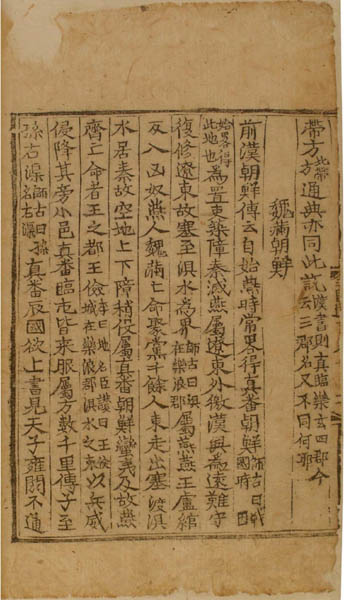 帶方北帶方通典亦同此說漢書則真臨樂玄四郡今云三郡名又不同何耶
魏滿朝鮮
前漢朝鮮傳云自始燕時常畧得真番朝鮮師古曰戰國
始畧得此地也為置吏築障秦滅燕屬遼東外徼漢興為遠難守
復修遼東故塞至浿水為界師古曰浿在樂浪郡屬燕燕王盧綰
反入凶奴燕人魏滿亡命聚黨千餘人東走出塞渡浿
水居秦故空地上下障稍役屬真番朝鮮蠻夷及故燕
齊亡命者王之都王儉李曰地名臣讚曰王儉城在樂浪郡浿水之東以兵威
侵降其旁小邑真番臨屯皆來服屬方數千里傳子至
孫右渠師古曰孫名右渠真番辰國欲上書見天子雍閼不通